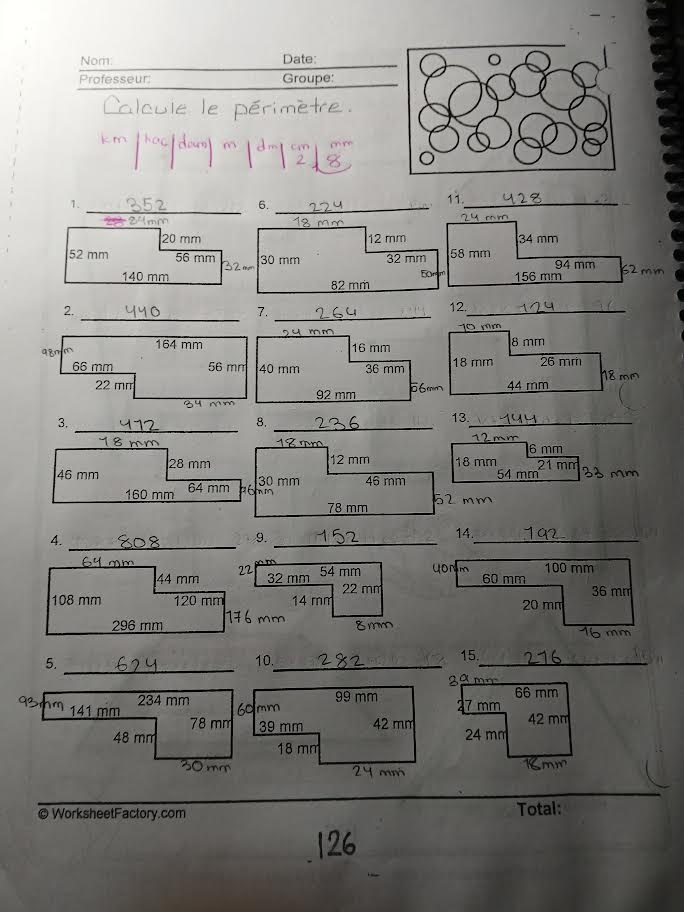 Nom: Date:
Professeur: Groupe:
Calcule le périmètre.
km hac dam m dm cm mm
2 8
1. 352
84mm
20 mm
52 mm 56 mm 32mm
140 mm
6. 224
18 mm
12 mm
30 mm 32 mm 50mm
82 mm
11. 428
24 mm
34 mm
58 mm 94 mm 62 mm
156 mm
2. 440
98mm 164 mm
66 mm 56 mm
22 mm
34 mm
7. 264
24 mm
16 mm
40 mm 36 mm 56mm
92 mm
12. 124
10 mm
8 mm
18 mm 26 mm 18 mm
44 mm
3. 412
18 mm
28 mm
46 mm 64 mm 96mm
160 mm
8. 236
18mm
12 mm
30 mm 46 mm 52 mm
78 mm
13. 144
12mm
6 mm
18 mm 21 mm 33 mm
54 mm
4. 808
64 mm
44 mm
108 mm 120 mm 176 mm
296 mm
9. 152
22mm 54 mm
32 mm 22 mm
14 mm
8mm
14. 192
40mm 100 mm
60 mm 36 mm
20 mm
16 mm
5. 624
93mm 234 mm
141 mm 78 mm
48 mm
30mm
10. 282
60mm 99 mm
39 mm 42 mm
18 mm
24 mm
15. 216
39mm
66 mm
27 mm 42 mm
24 mm
18mm
© WorksheetFactory.com Total:
126